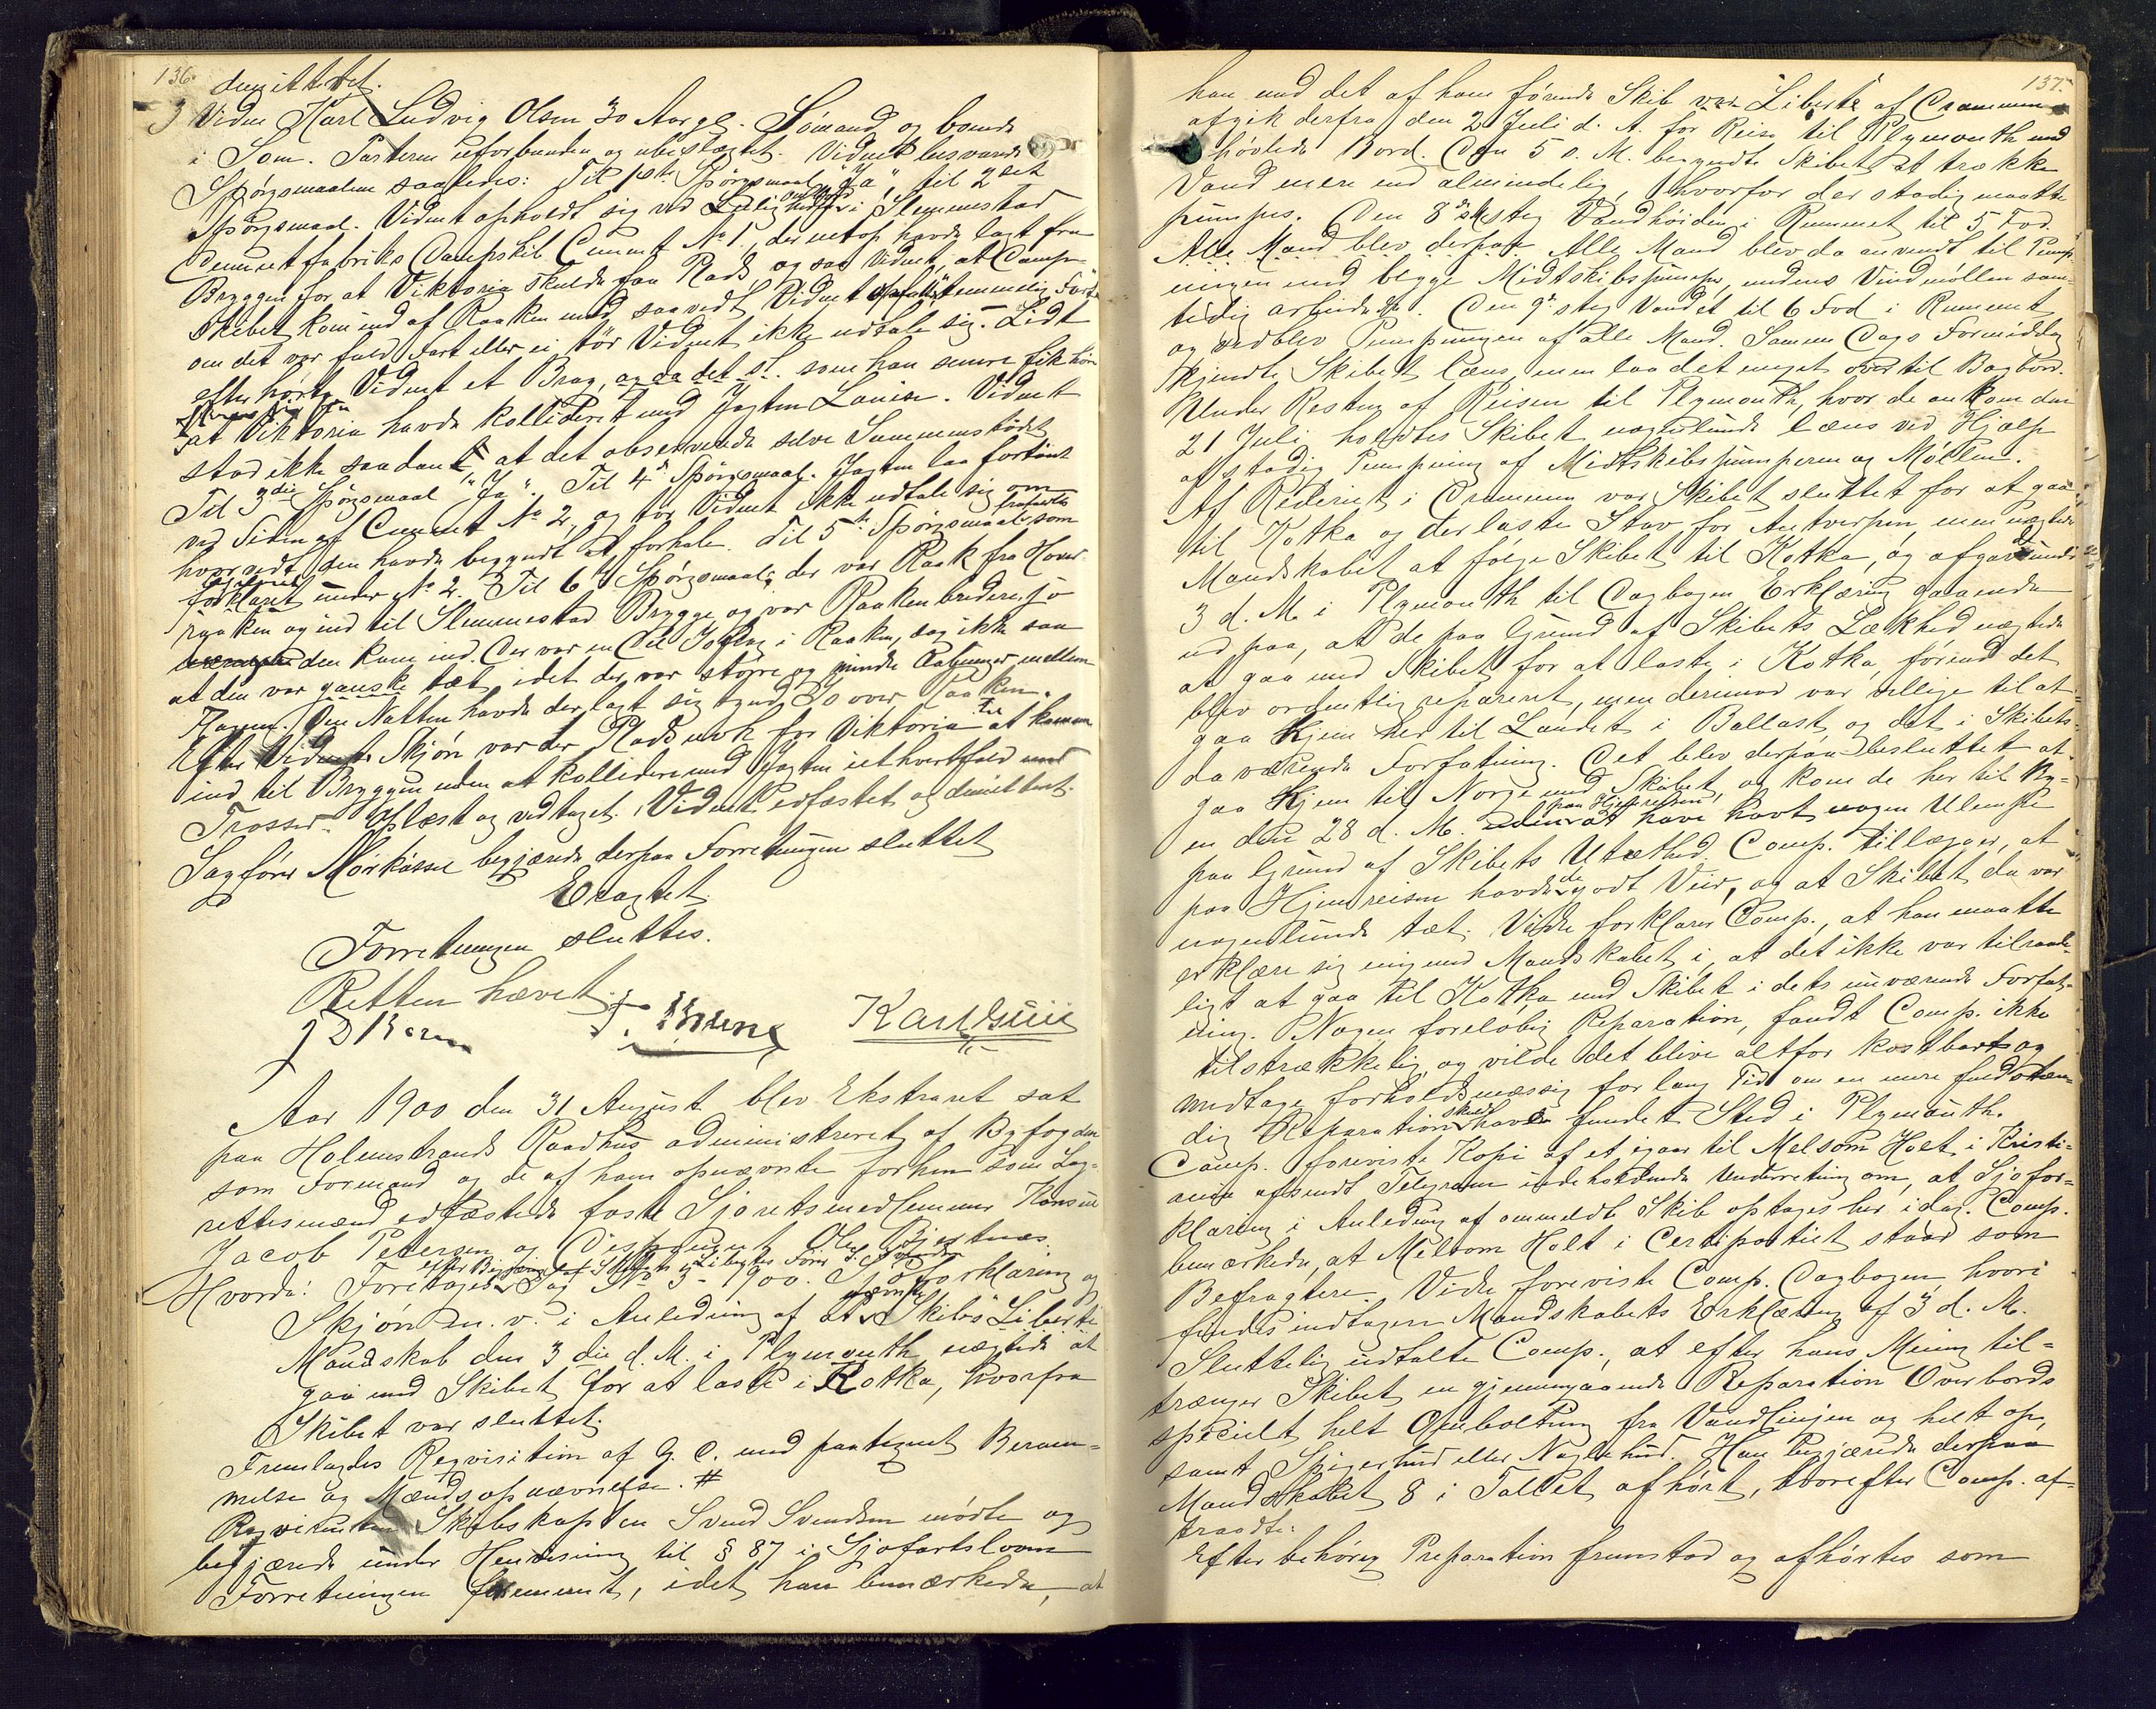 136.
demitteret.
3 Vidne Karl Ludvig Olsen 30 Aar gl. Sömand og boende
i Som. Parterne uforbunden og ubeslægtet. Vidnet besvarede
Spörgsmaalene saaledes: Til 1ste Spörgsmaal "Ja", til 2det
Spörgsmaal. Vidnet opholdt sig ved i Slemmestad
Cementfabriks Dampskib Cement No 1, der netop havde lagt fra
Bryggen for at Viktoria skulde faa Plads, og saa Vidnet, at Damp-
skibet kom ind af Raaken med, saavidt Vidnet temmelig Fart
om det var fuld Fart eller ei tör Vidnet ikke udtale sig. Lidt
efter hörte Vidnet et Brag, og da det st. som han senere fik höre
at Viktoria havde kollideret med Jagten Louise. Vidnet
stod ikke saadant, at det observerede selve Sammenstödet
Til 3die Spörgsmaal "Ja". Til 4de Spörgsmaal. Jagten laa fortöiet
ved Siden af Cement No 2, og tör Vidnet ikke udtale sig om
hvorvidt den havde begyndt at forhale. Til 5te Spörgsmaal som
forklaret under No 2. Til 6te Spörgsmaal, der var Raak fra Hoved-
raaken og ind til Slemmestad Brygge og var Raaken bredere jo
længere den kom ind. Der var en Del Isflag i Raaken, dog ikke saa
at den var ganske tæt, idet der var större og mindre Aabninger mellem
Flagene. Om Natten havde der lagt sig tynd Is over Raaken.
Efter Vidnets Skjön var der Plads nok for Viktoria til at komme
ind til Bryggen uden at kollidere med Jagten iethvertfald med
Trosser. Oplæst og vedtaget. Vidnet edfæstet og demitteret.
Sagförer Mörkåsen begjærede derpaa Forretningen sluttet
Eragtet
Forretningen sluttes.
Retten hævet.
Aar 1900 den 31 August blev Ekstraret sat
paa Holmestrands Raadhus administreret af Byfogden
som Formand og de af ham opnævnte forhen som Lag-
rettesmænd edfæstede faste Sjöretsmedlemmer Konsul
Jacob Petersen og Disponent Ole Bjertnæs.
Hvorda: Foretoges Sag No 3 - 1900. Sjöforklaring og
Skjön m. v. i Anledning af at Skibs "Liberté"
Mandskab den 3die d. M. i Plymouth nægtede at
gaa med Skibet for at laste i Kotka, hvorfra
Skibet var sluttet.
Fremlagdes Reqvisition af G. D. med paategnet Beram-
melse og Mændsopnævnelse. #
Reqvirenten Skibskaptein Svend Svendsen mödte og
begjærede under Henvisning til § 87 i Sjöfartsloven
Forretningen fremmet, idet han bemærkede, at
137.
han med det af ham förende Skib "Liberté" af Drammen
afgik derfra den 2 Juli d. A. for Reise til Plymouth med
hövlede Bord. Den 5 s. M. begyndte Skibet at trække
Vand mere end almindelig, hvorfor der stadig maatte
pumpes. Den 8de steg Vandhöiden i Rummet til 5 Fod.
Alle Mand blev derpaa Alle Mand blev da anvendt til Pump-
ningen med begge Midtskibspumper, medens Vindmöllen sam-
tidig arbeidede. Den 9de steg Vandet til 6 Fod i Rummet
og vedblev Pumpningen af alle Mand. Samme Dags Formiddag
kjendte Skibet læns, men laa det meget over til Bagbord.
Under Resten af Reisen til Plymouth, hvor de ankom den
21 Juli, holdtes Skibet nogenlunde læns ved Hjælp
af stadig Pumpning af Midtskibspumperne og Möllen.
Af Rederiet i Drammen var Skibet sluttet for at gaa
til Kotka og der laste Stav for Antverpen, men nægtede
Mandskabet at fölge Skibet til Kotka, og afgav under
3 d. M. i Plymouth til Dagbogen Erklæring gaaende
ud paa, at de paa Grund af Skibets Lækhed nægtede
at gaa med Skibet for at laste i Kotka, förend det
blev ordentlig repareret, men derimod var villige til at
gaa hjem her til Landet i Ballast og det i Skibets
daværende Forfatning. Det blev derpaa besluttet at
gaa Hjem til Norge med Skibet, og kom de her til By-
en den 28 d. M. uden at paa Hjemreisen have havt nogen Ulempe
paa Grund af Skibets Utæthed. Comp. tillægger, at
paa Hjemreisen havde de godt Veir, og at Skibet da var
nogenlunde tæt. Videre forklarer Comp., at han maatte
erklære sig enig med Mandskabet i, at det ikke var tilraade-
ligt at gaa til Kotka med Skibet i dets nuværende Forfat-
ning. Nogen foreløbig Reparation, fandt Comp. ikke
tilstrækkelig, og vilde det blive altfor kostbart og
medtage forholdsmæssig for lang Tid om en mere fuldstæn-
dig Reparation skulde have fundet Sted i Plymouth.
Comp. foreviste Kopi af et igaar til Melsom Holt i Kristi-
ania afsendt Telegram indeholdende Underretning om, at Sjöfor-
klaring i Anledning af ommeldte Skib optages her idag. Comp.
bemærkede, at Melsom Holt i Certepartiet staar som
Befragtere. Videre foreviste Comp. Dagbogen, hvori
findes indtagen Mandskabets Erklæring af 3 d. M.
Sluttelig udtalte Comp., at efter hans Mening til-
trænger Skibet en gjennemgaaende Reparation Overbords
specielt helt Ombolting fra Vandlinjen og helt op,
samt Spigerhud eller Naglehud. Han begjærede derpaa
Mandskabet 8 i Tallet afhört, hvorefter Comp. af-
traadte.
Efter behörig Preparation fremstod og afhörtes som